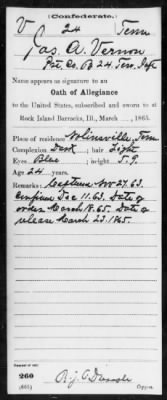 (Confederate.)
V 24 Tenn
Jas. A. Vernon
Pvt. Co. B 24 Ten. Inft
Name appears as signature to an
Oath of Allegiance
to the United States, subscribed and sworn to at
Rock Island Barracks, Ill., March ..., 1865.
Place of residence Nolinsville, Tenn
Complexion Dark ; hair Light
Eyes Blue ; height 5. 9.
Age 24 years.
Remarks: Capture Nov 27. 63.
confine Dec 11. 63. Date of
order March 18. 65. Date of
release March 23. 1865.
260
(665) Copyist.